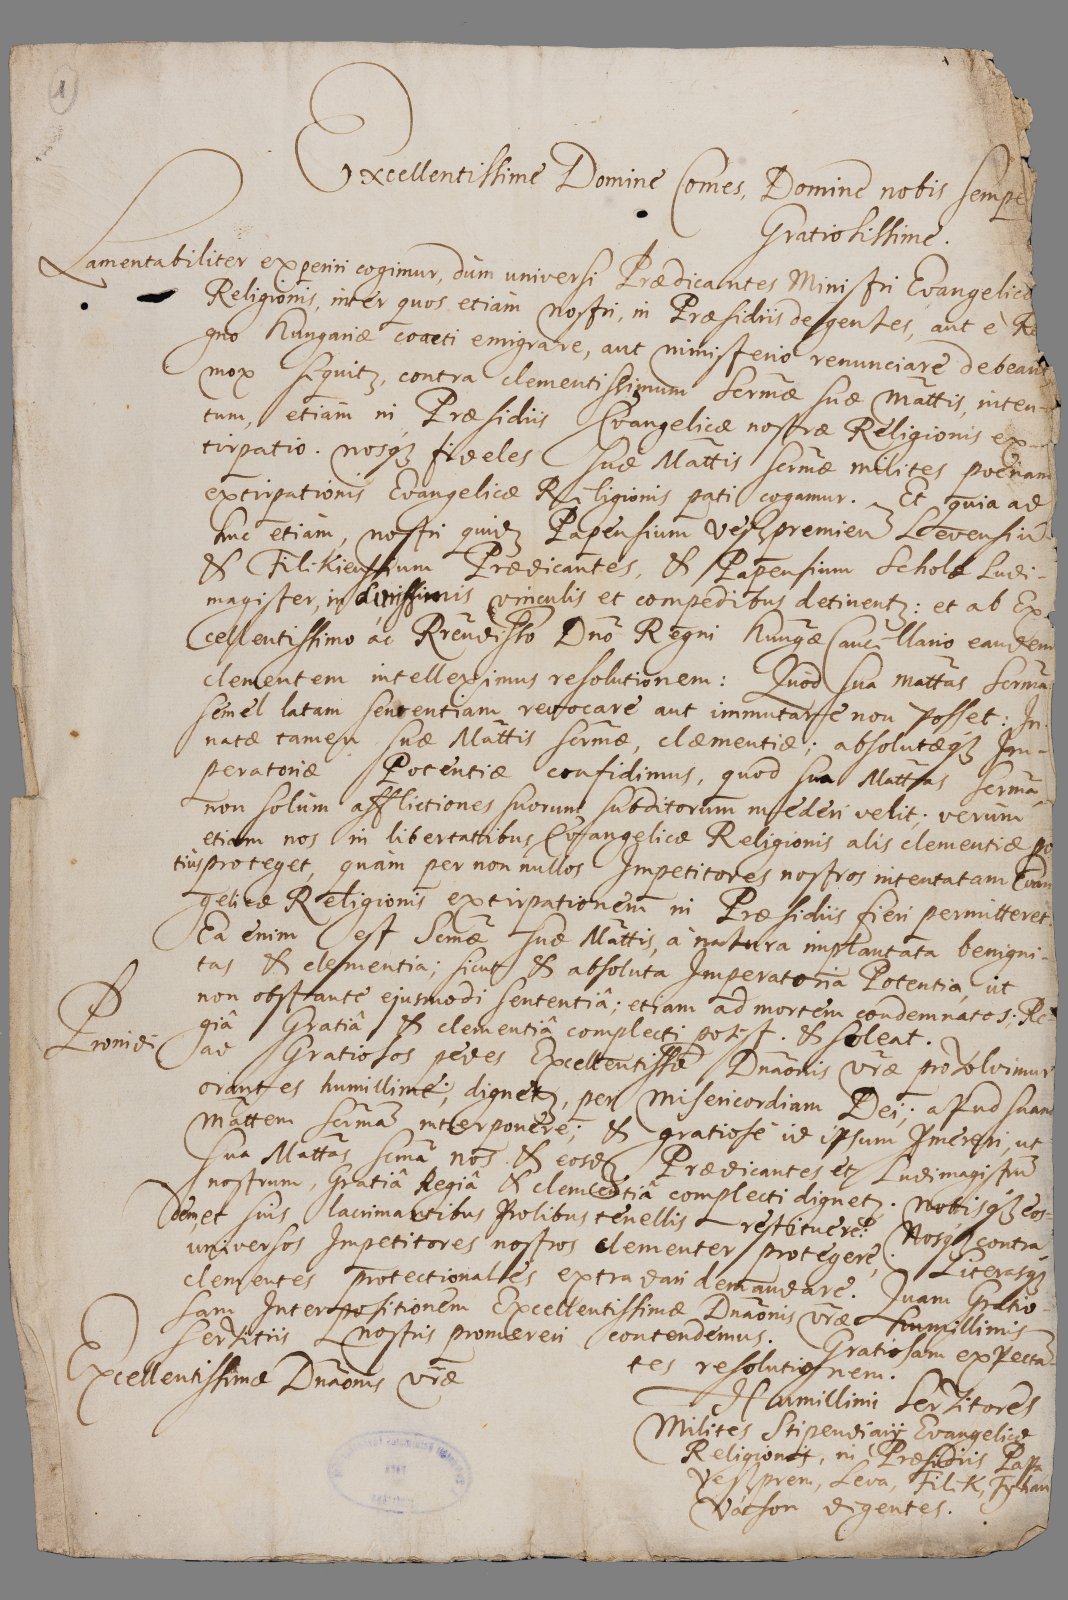 1
Excellentissime Domine Comes, Domine nobis sempe
Gratiosissime.
Lamentabiliter experiri cogimur, dum universi Prædicantes Ministri Evangelicæ
Religionis, inter quos etiam nostri, in Præsidiis degentes, aut è Re
gno Hungariæ coacti emigrare, aut ministerio renunciare debeant
mox sequitz, contra clementissimum Sermæ suæ Mattis, inten-
tum, etiam in Præsidiis Evangelicæ nostræ Religionis ex-
tirpatio. nosqz fideles suæ Mattis Sermæ milites poenam
extirpationis Evangelicæ Religionis pati cogamur. Et quia ad
huc etiam, nostri quidz Papensium Veszpremien Levensiũ
& Filikiensium Prædicantes, & Papensium Scholæ Ludi-
magister, in durissimis vinculis et compedibus detinentz: et ab Ex
cellentissimo ac Rrẽndissõ Dnõ Regni Hungæ Cancellario eandem
clementem intelleximus resolutionem: Quod sua Mattas Serma
semel latam sententiam revocare aut immutare non posset: In-
natæ tamen suæ Mattis Sermæ, clæmentiæ; absolutæqz Im-
peratoriæ Potentiæ confidimus, quod sua Mattas Serma
non solùm afflictiones suorum subditorum mederi velit; verùm
etiam nos in libertatibus Evangelicæ Religionis alis clementiæ po
tius proteget, quàm per non nullos Impetitores nostros intentatam Evan
gelicæ Religionis extirpationem in Præsidiis fieri permitteret.
Ea enim est Sermæ suæ Mattis, à natura implantata benigni-
tas & clementia; sicut & absoluta Imperatoria Potentia, ut
non obstante ejusmodi sententiâ; etiam ad mortem condemnatos: Re-
giâ Gratiâ & clementiâ complecti potest. & soleat.
Proinde ad Gratiosos pedes Excellentissæ Dnaonis vræ provolvimur
orantes humillime; dignetz, per Misericordiam Dei; apud suam
Mattem Sermã interponere; & gratiosè id ipsum Impetrari, ut
sua Mattas Serma nos & eosdz Prædicantes et Ludimagistrũ
nostrum, Gratiâ Regiâ & clementiâ complecti dignetz. nobisqz eos-
demet suis lacrimantibus Prolibus tenellis restituere. Nosqz contra
universos Impetitores nostros clementer protegere, Literasqz
clementes protectionales extradari demandare. Quam Gratio-
sam Interpositionem Excellentissimæ Dnãonis vræ humillimis
Servitiis nostris promereri contendemus. Gratiosam expectã-
tes resolutionem.
Excellentissimæ Dnãonis vræ
Humillimi Servitores
Milites Stipendiarij Evangelicæ
Religionis, in Præsidiis Papa
Veszprem, Leva, Filik, Tyhan
Vásson degentes.